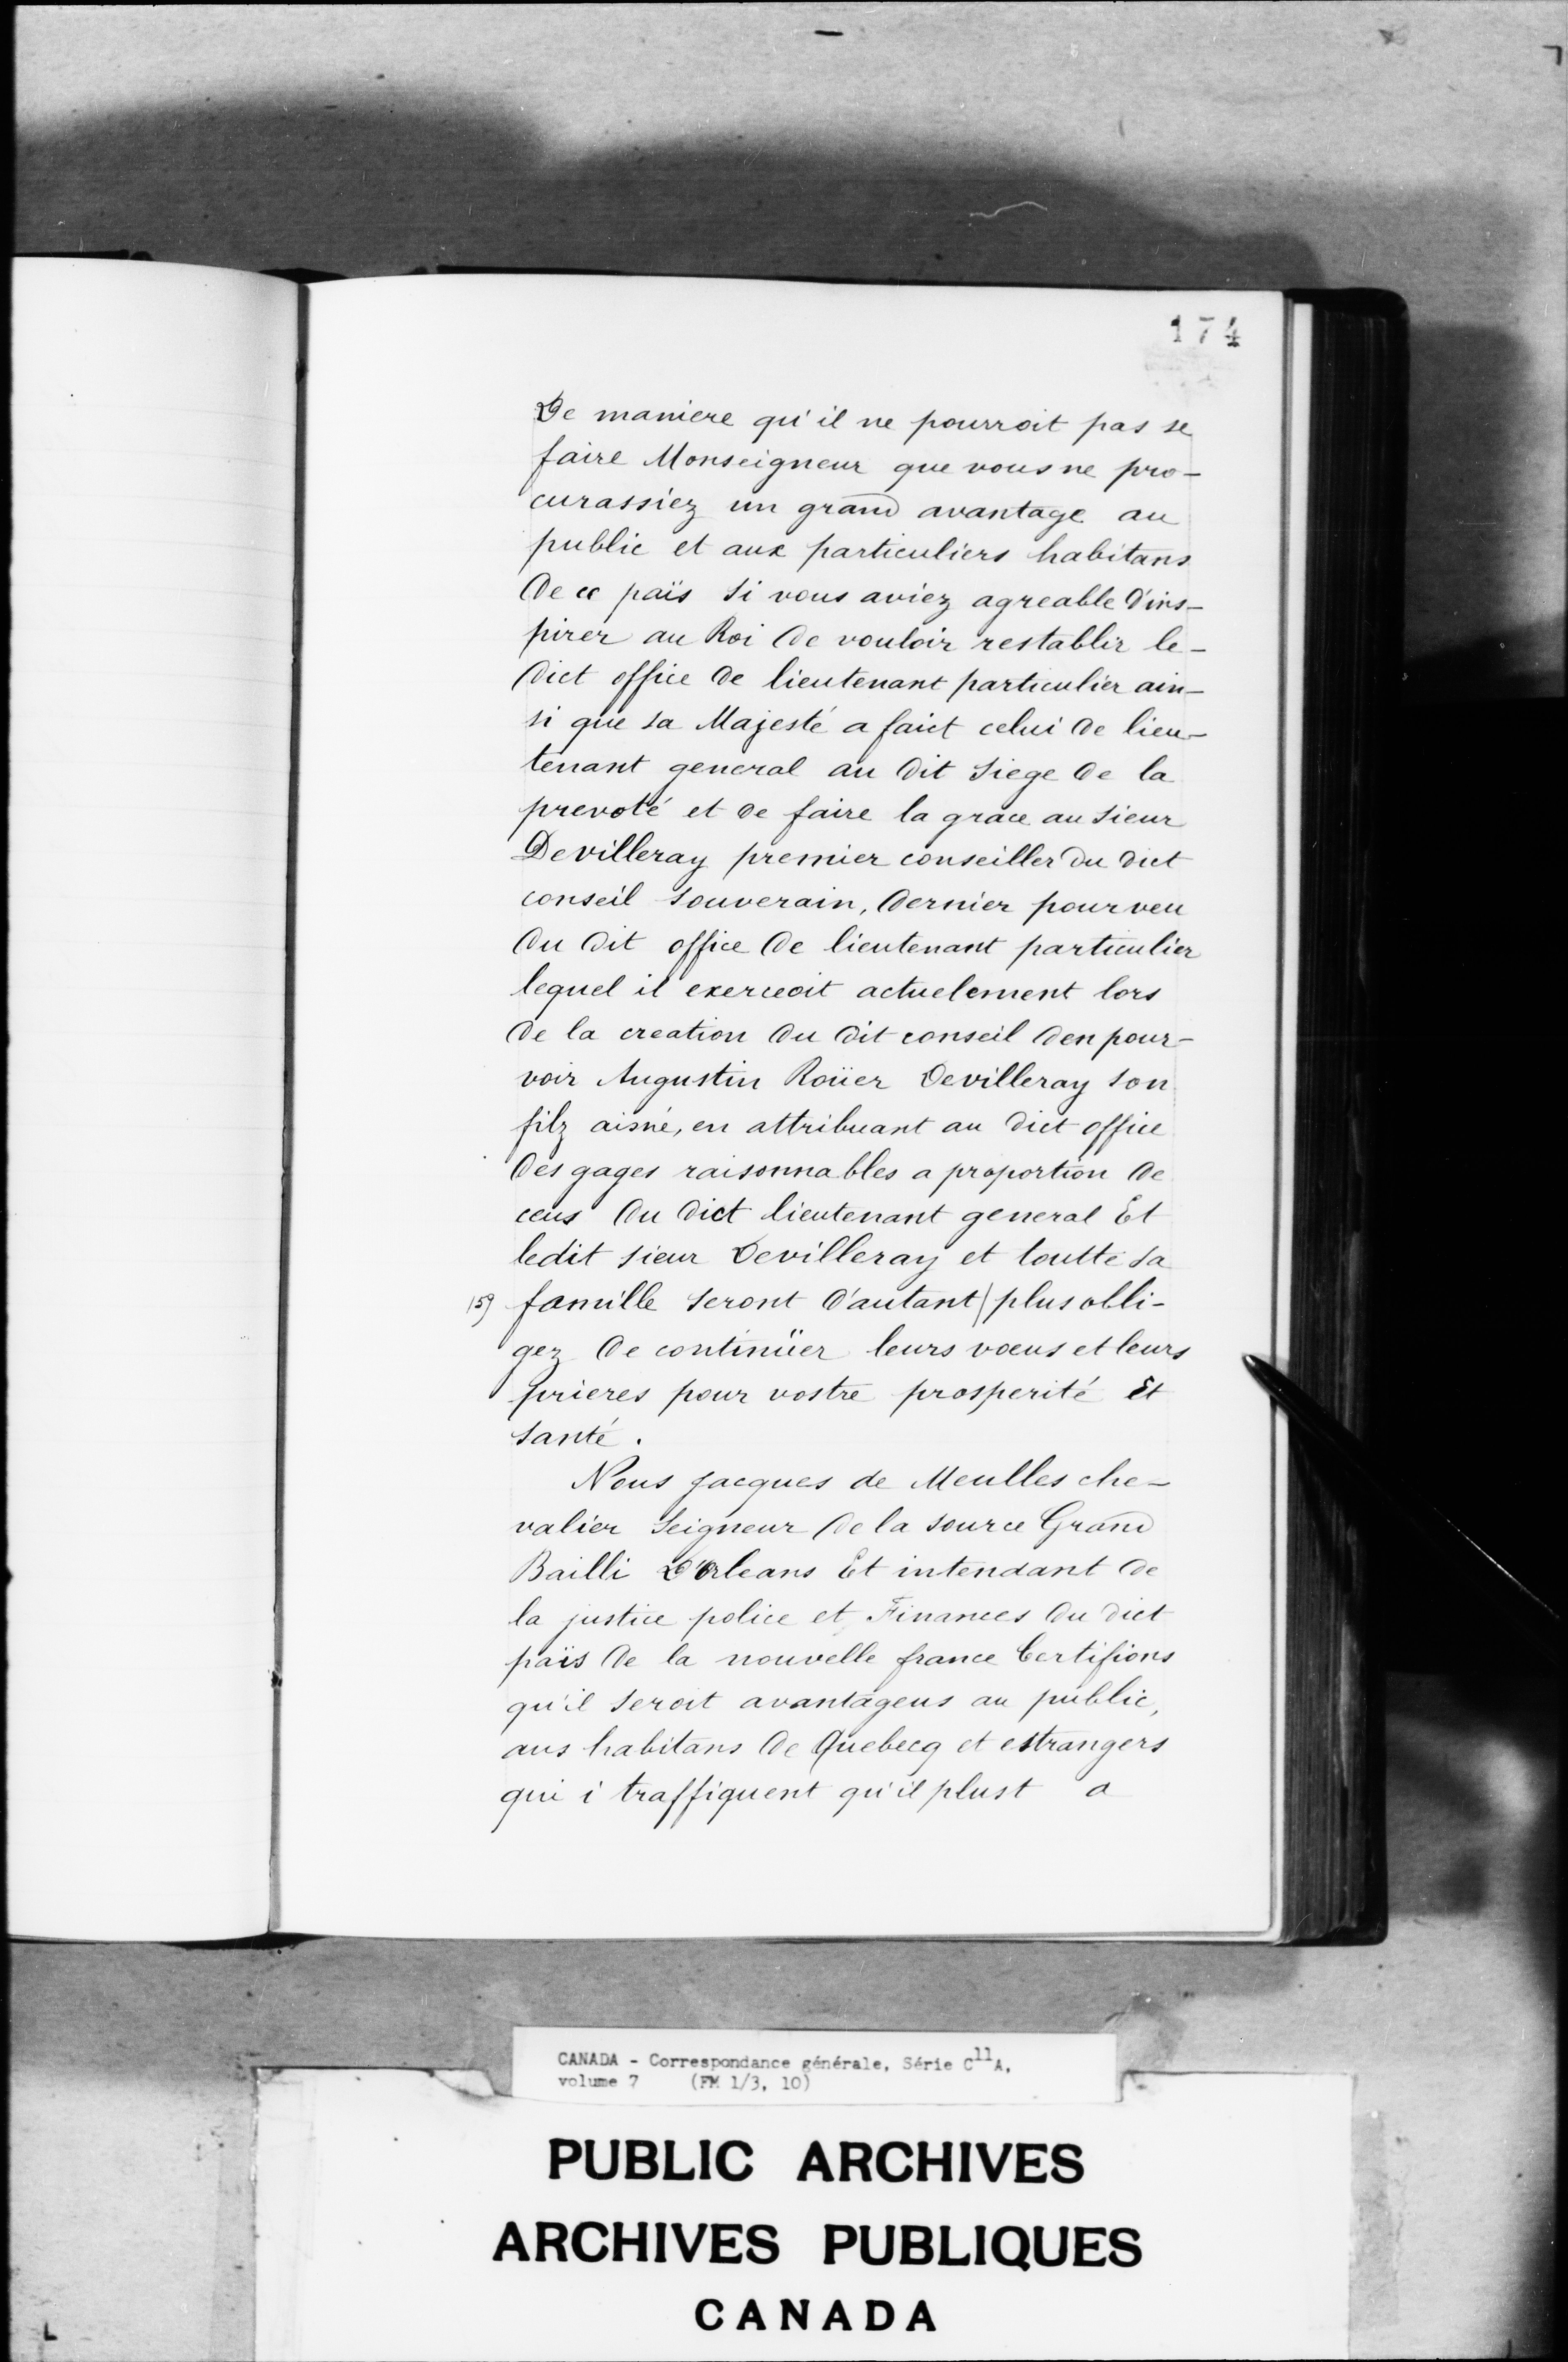 174
De maniere qu'il ne pourroit pas se
faire Monseigneur que vous ne pro-
curassiez un grand avantage au
public et aux particuliers habitans
de ce païs si vous aviez agreable d'ins-
pirer au Roi de vouloir restablir le-
dict office de lieutenant particulier ain-
si que sa Majesté a faict celui de lieu-
tenant general au dit siege de la
prevoté et de faire la grace au sieur
Devilleray premier conseiller du dict
conseil souverain, dernier pourveu
du dit office de lieutenant particulier
lequel il exerceoit actuelement lors
de la creation du dit conseil den pour-
voir Augustin Roüer Devilleray son
filz aisné, en attribuant au dict office
des gages raisonnables a proportion de
ceus du dict lieutenant general Et
ledit sieur Devilleray et toutte sa
159 famille seront d'autant | plus obli-
gez de continüer leurs voeus et leurs
prieres pour vostre prosperité et
santé.
Nous Jacques de Meulles che-
valier seigneur de la source Grand
Bailli D'Orleans Et intendant de
la justice police et Finances du dict
païs de la nouvelle france Certifions
qu'il seroit avantageus au public,
aus habitans de Quebecq et estrangers
qui i traffiquent qu'il plust a
CANADA - Correspondance générale, Série C11A,
volume 7 (FM 1/3, 10)
PUBLIC ARCHIVES
ARCHIVES PUBLIQUES
CANADA